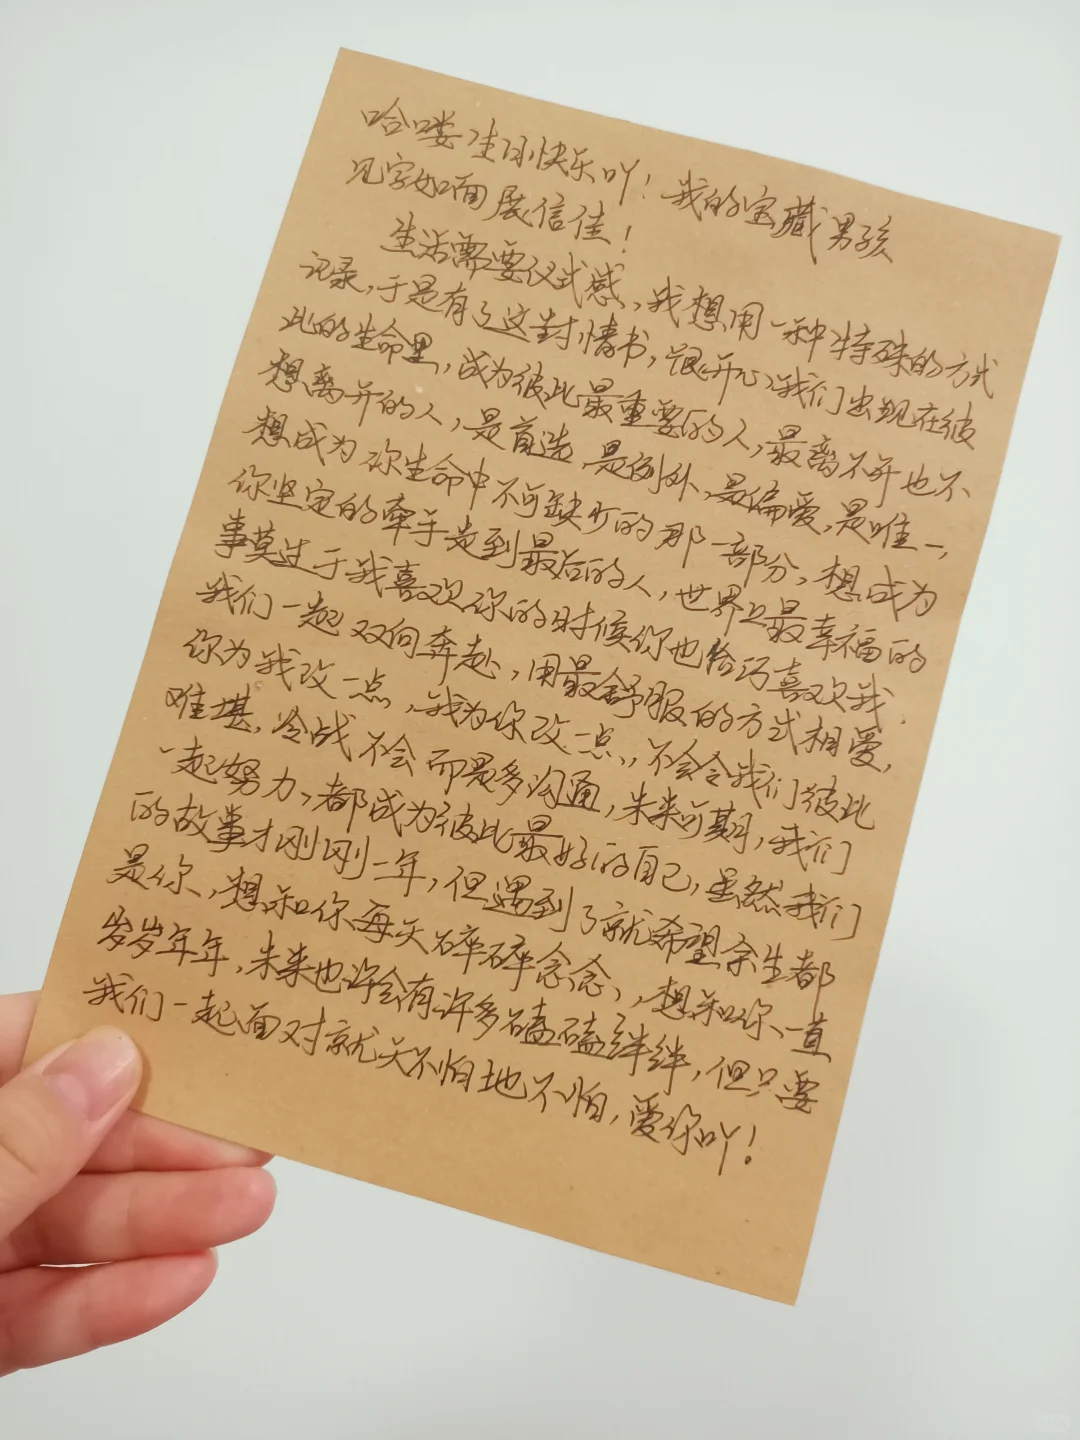 哈喽生日快乐吖！我的宝藏男孩
见字如面展信佳！
生活需要仪式感，我想用一种特殊的方式
记录，于是有了这封情书，很开心我们出现在彼
此的生命里，成为彼此最重要的人，最离不开也不
想离开的人，是首选，是例外，是偏爱，是唯一，
想成为你生命中不可缺少的那一部分，想成为
你坚定的牵手走到最后的人，世界上最幸福的
事莫过于我喜欢你的时候你也恰巧喜欢我，
我们一起双向奔赴，用最舒服的方式相爱，
你为我改一点，我为你改一点，不会令我们彼此
难堪，冷战不会而是多沟通，未来可期，我们
一起努力，都成为彼此最好的自己，虽然我们
的故事才刚刚一年，但遇到了就希望余生都
是你，想和你每天碎碎念念，想和你一直
岁岁年年，未来也许会有许多磕磕绊绊，但只要
我们一起面对就天不怕地不怕，爱你吖！